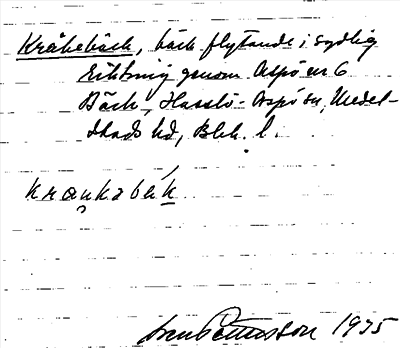 Kråkebäck, bäck flytande i sydlig
riktning genom Aspö en 6
Bäck, Hasslö-Aspö sn, Medel-
stads hd, Blek. l.
kra̤ŋkəbék
Pettersson 1975